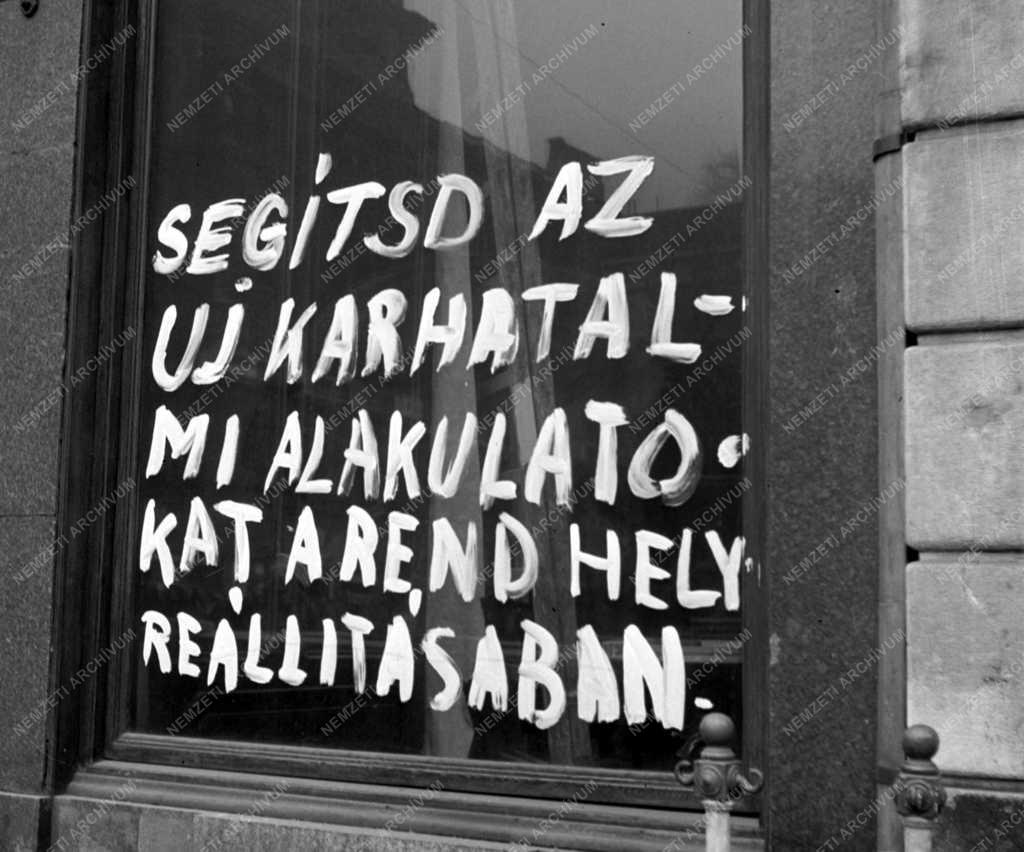 SEGÍTSD AZ
UJ KARHATAL-
MI ALAKULATO-
KAT A REND HELY-
REÁLLITÁSABAN.
NEMZETI ARCHÍVUM